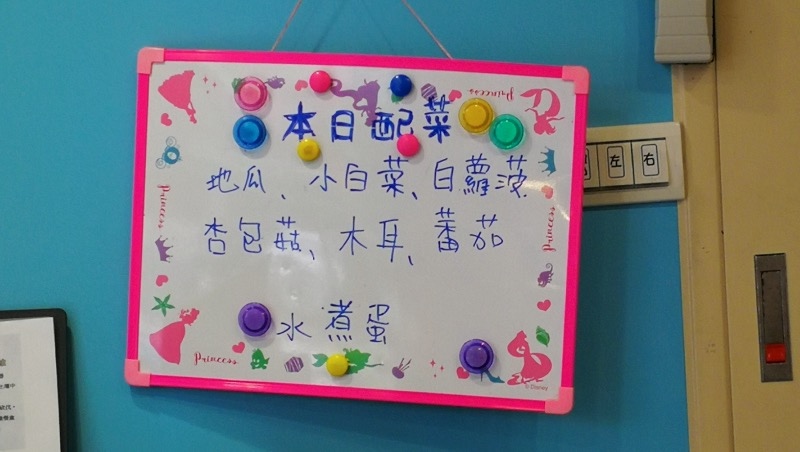 本日配菜
地瓜、小白菜、白蘿菠
杏包菇、木耳、蕃茄
水煮蛋
Princess
Princess
Princess
Princess
© Disney
左 右